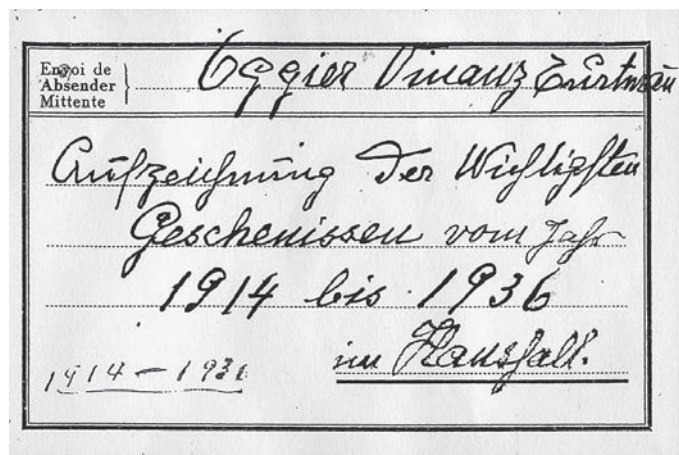 Envoi de
Absender
Mittente
Eggier Vinanz Turtman
Aufzeichnung der Wichtigsten
Geschenissen vom Jahr
1914 bis 1936
im Haushalt.
1914 – 1936